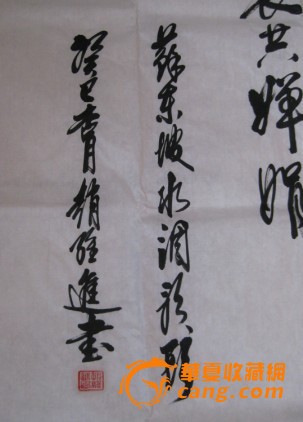 共嬋娟
蘇東坡水調歌頭
癸巳月趙經進書
華夏收藏網
cang.com